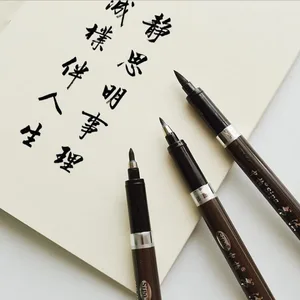 静思明事理
诚樸伴人生